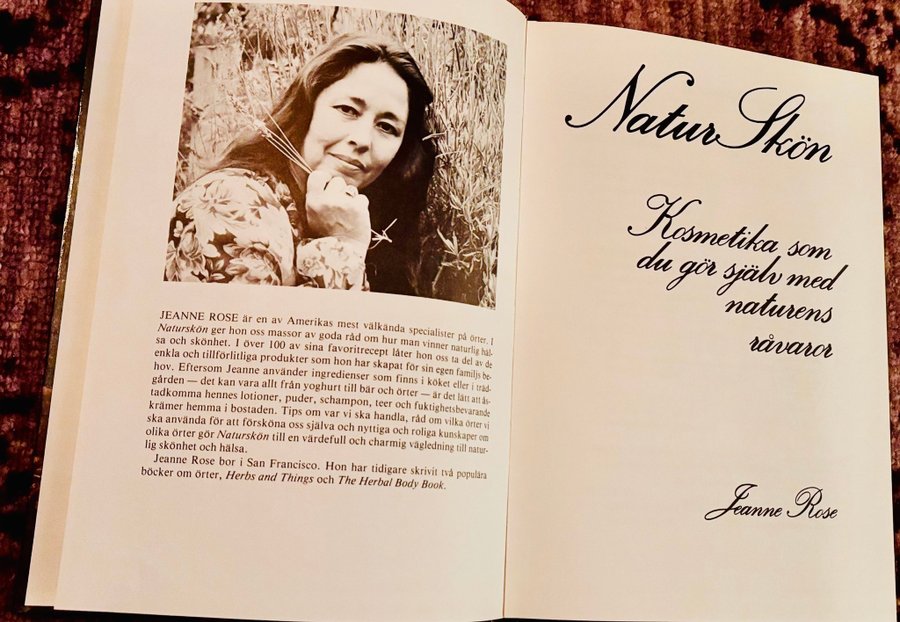 JEANNE ROSE är en av Amerikas mest välkända specialister på örter. I
Naturskön ger hon oss massor av goda råd om hur man vinner naturlig häl-
sa och skönhet. I över 100 av sina favoritrecept låter hon oss ta del av de
enkla och tillförlitliga produkter som hon har skapat för sin egen familjs be-
hov. Eftersom Jeanne använder ingredienser som finns i köket eller i träd-
gården — det kan vara allt från yoghurt till bär och örter — är det lätt att ås-
tadkomma hennes lotioner, puder, schampon, teer och fuktighetsbevarande
krämer hemma i bostaden. Tips om var vi ska handla, råd om vilka örter vi
ska använda för att försköna oss själva och nyttiga och roliga kunskaper om
olika örter gör Naturskön till en värdefull och charmig vägledning till natur-
lig skönhet och hälsa.
Jeanne Rose bor i San Francisco. Hon har tidigare skrivit två populära
böcker om örter, Herbs and Things och The Herbal Body Book.
Natur Skön
Kosmetika som
du gör själv med
naturens
råvaror
Jeanne Rose